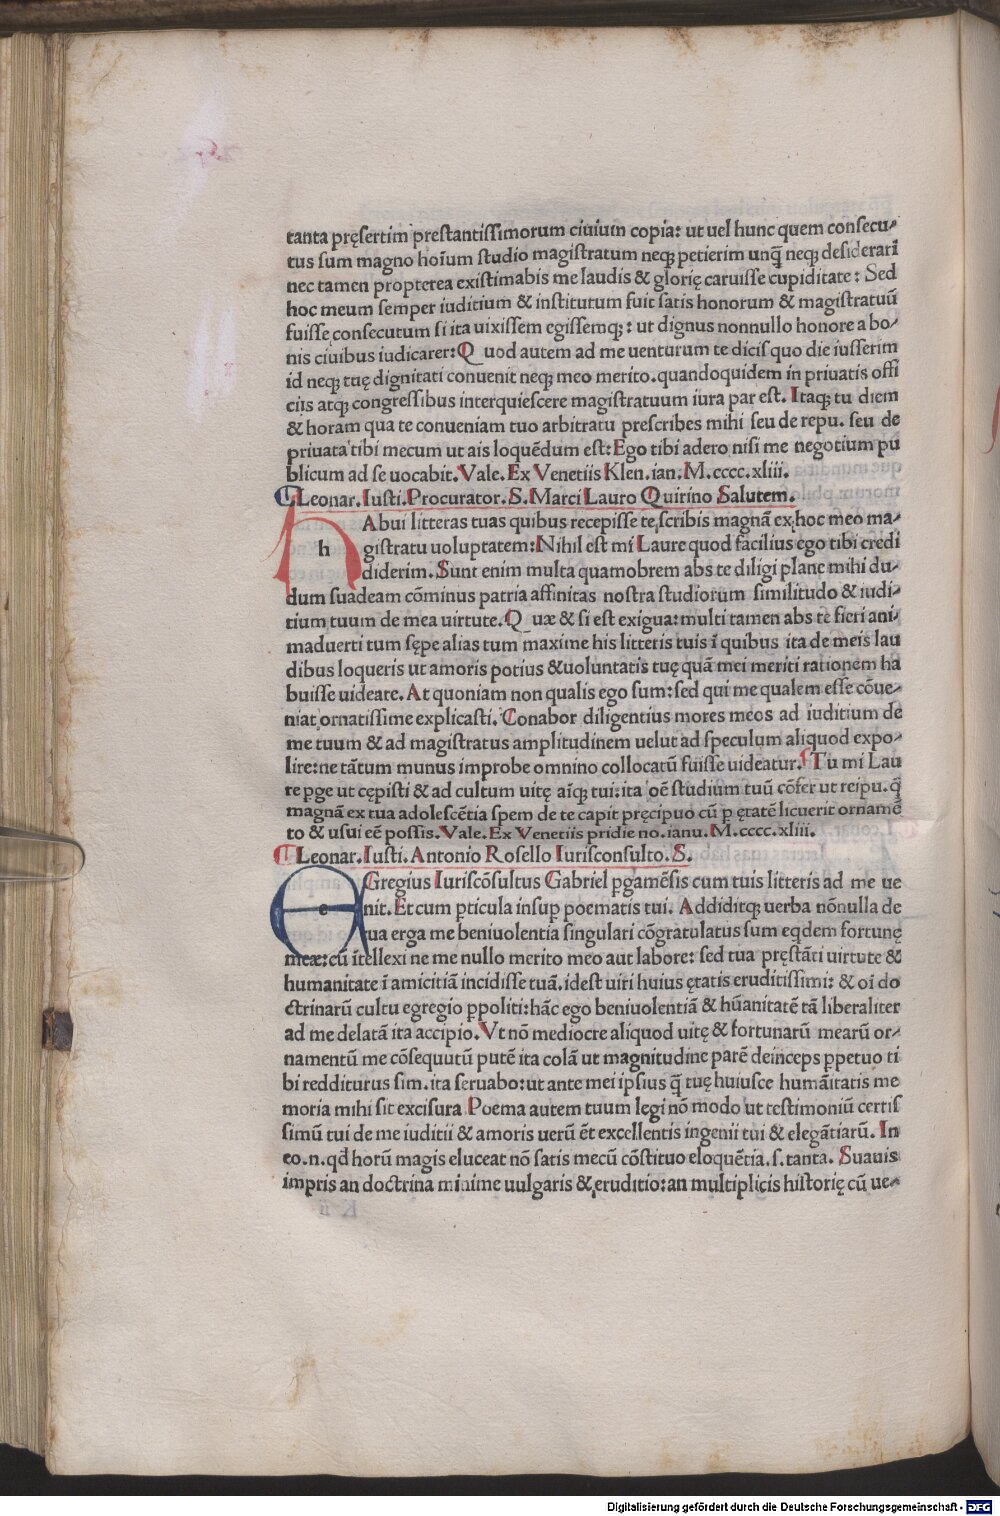 tanta pręsertim prestantissimorum ciuium copia: ut uel hunc quem consecu-
tus sum magno hoĩum studio magistratum neqꝫ petierim unq̃ neqꝫ desiderari
nec tamen propterea existimabis me laudis & glorię caruisse cupiditate: Sed
hoc meum semper iuditium & institutum fuit satis honorum & magistratuũ
fuisse consecutum si ita uixissem egissemqꝫ: ut dignus nonnullo honore a bo-
nis ciuibus iudicarer: Quod autem ad me uenturum te dicis quo die iusserim
id neqꝫ tuę dignitati conuenit neqꝫ meo merito. quandoquidem in priuatis offi
ciis atqꝫ congressibus interquiescere magistratuum iura par est. Itaqꝫ tu diem
& horam qua te conueniam tuo arbitratu prescribes mihi seu de repu. seu de
priuata tibi mecum ut ais loquẽdum est: Ego tibi adero nisi me negotium pu
blicum ad se uocabit. Vale. Ex Venetiis Klen. ian. M.cccc.xliii.
Leonar. Iusti. Procurator. S. Marci Lauro Quirino Salutem.
h Abui litteras tuas quibus recepisse te scribis magnã ex hoc meo ma-
gistratu uoluptatem: Nihil est mi Laure quod facilius ego tibi credi
diderim. Sunt enim multa quamobrem abs te diligi plane mihi du-
dum suadeam cõminus patria affinitas nostra studiorum similitudo & iudi-
tium tuum de mea uirtute. Quæ & si est exigua: multi tamen abs te fieri ani-
maduerti tum sępe alias tum maxime his litteris tuis ĩ quibus ita de meis lau
dibus loqueris ut amoris potius & uoluntatis tuę quã mei meriti rationem ha
buisse uideare. At quoniam non qualis ego sum: sed qui me qualem esse cõue-
niat ornatissime explicasti. Conabor diligentius mores meos ad iuditium de
me tuum & ad magistratus amplitudinem uelut ad speculum aliquod expo-
lire: ne tãtum munus improbe omnino collocatũ fuisse uideatur. Tu mi Lau
re ꝑge ut cępisti & ad cultum uitę aĩqꝫ tui: ita oẽ studium tuũ cõfer ut reipu. q̃
magnã ex tua adolescẽtia spem de te capit pręcipuo cũ ꝑ ętatẽ licuerit ornamẽ
to & usui eẽ possis. Vale. Ex Venetiis pridie no. ianu. M.cccc.xliii.
Leonar. Iusti. Antonio Rosello Iurisconsulto. S.
e Gregius Iuriscõsultus Gabriel ꝑgamẽsis cum tuis litteris ad me ue
nit. Et cum ꝑticula insuꝑ poematis tui. Addiditqꝫ uerba nõnulla de
tua erga me beniuolentia singulari cõgratulatus sum eqdem fortunę
meæ: cũ ĩtellexi ne me nullo merito meo aut labore: sed tua pręstãti uirtute &
humanitate ĩ amicitiã incidisse tuã. idest uiri huius ętatis eruditissimi: & oĩ do
ctrinarũ cultu egregio ꝑpoliti: hãc ego beniuolentiã & hũanitatẽ tã liberaliter
ad me delatã ita accipio. Vt nõ mediocre aliquod uitę & fortunarũ mearũ or-
namentũ me cõsequutũ putẽ ita colã ut magnitudine parẽ deinceps ꝑpetuo ti
bi redditurus sim. ita seruabo: ut ante mei ipsius q̃ tuę huiusce humãitatis me
moria mihi sit excisura Poema autem tuum legi nõ modo ut testimoniũ certis
simũ tui de me iuditii & amoris uerũ ẽt excellentis ingenii tui & elegãtiarũ. In
eo .n. qđ horũ magis eluceat nõ satis mecũ cõstituo eloquẽtia .s. tanta. Suauis
impris an doctrina minime uulgaris & eruditio: an multiplicis historię cũ ue-
Digitalisierung gefördert durch die Deutsche Forschungsgemeinschaft - DFG